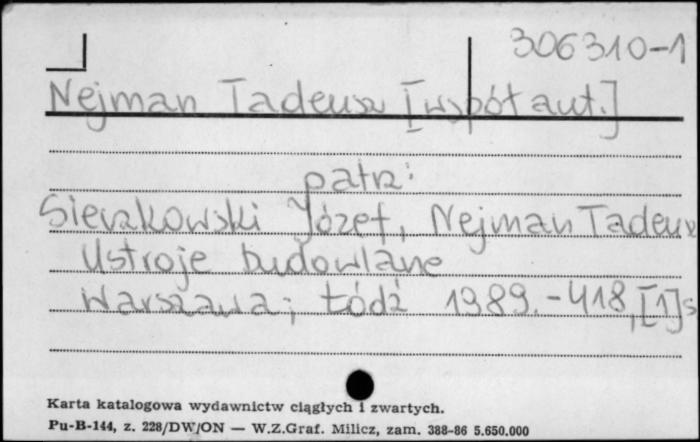 306310-1
Nejman Tadeusz [współaut.]
patrz:
Sieczkowski Józef, Nejman Tadeusz
Ustroje budowlane
Warszawa; Łódź 1989. - 418, [1] s
Karta katalogowa wydawnictw ciągłych i zwartych.
Pu-B-144, z. 228/DW/ON — W.Z.Graf. Milicz, zam. 388-86 5.650.000